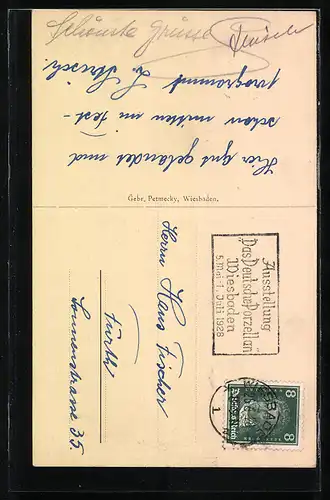 Hier gut gelandet und
schon mitten im Fest-
programm
Schönste Grüsse
Gebr. Petmecky, Wiesbaden.
Ausstellung
Das Deutsche Porzellan
Wiesbaden
5. Mai - 1. Juli 1928
WIESBADEN
1
8 8
Deutsches Reich
Herrn Hans Fischer
Fürth
Sonnenstrasse 35.